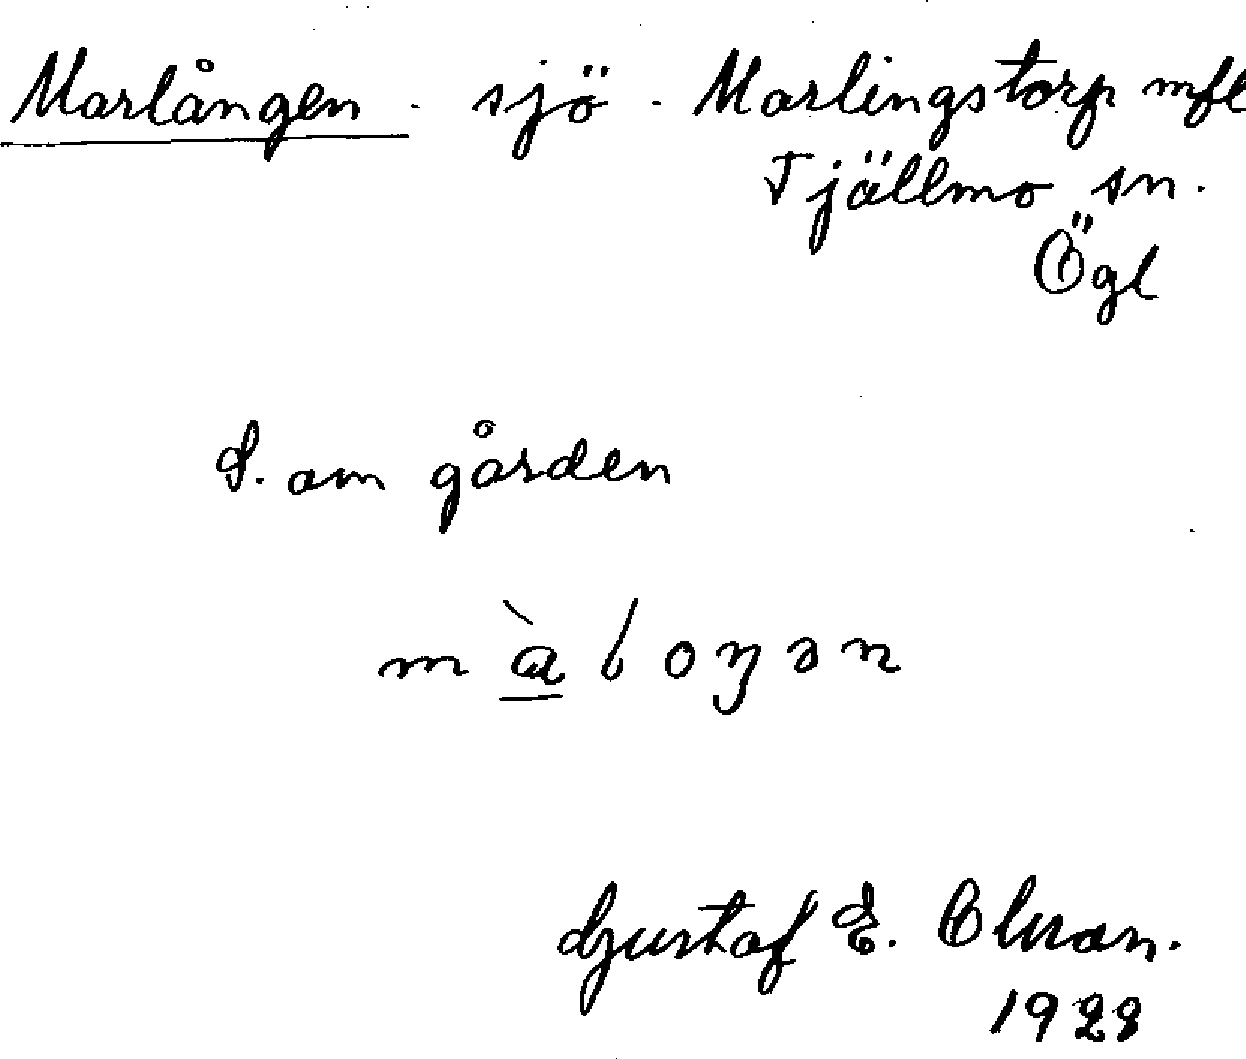 Marlången - sjö - Marlingstorp mfl
Tjällmo sn.
Ögl
S. om gården
m à l o ŋ ə n
Gustaf E. Olsson.
1928